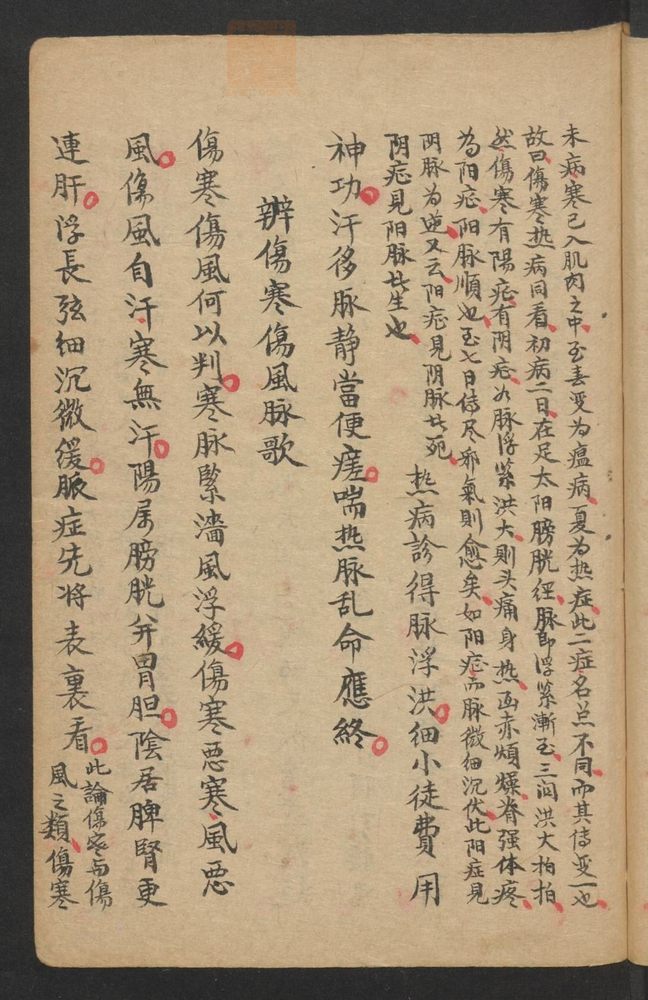 未病寒已入肌肉之中至春变为瘟病夏为热症此二症名虽不同而其传变一也
故曰傷寒热病同看初病二日在足太阳膀胱经脉即浮紧漸至三间洪大拍拍
然傷寒有陽症有阴症如脉浮紧洪大则头痛身热面赤煩燥脊强体疼
为阳症阳脉順也至七日传尽邪氣则愈矣如阳症而脉微细沉伏此阳症見
阴脉为逆又云阳症見阴脉此死
阴症見阳脉此生也
热病診得脉浮洪细小徒費用
神功汗後脉静當便瘥喘热脉乱命應終
辨傷寒傷風脉歌
傷寒傷風何以判寒脉緊濇風浮緩傷寒恶寒風恶
風傷風自汗寒無汗陽属膀胱并胃胆陰居脾腎更
連肝浮長弦细沉微緩脈症先将表裏看此論傷寒与傷
風之類傷寒